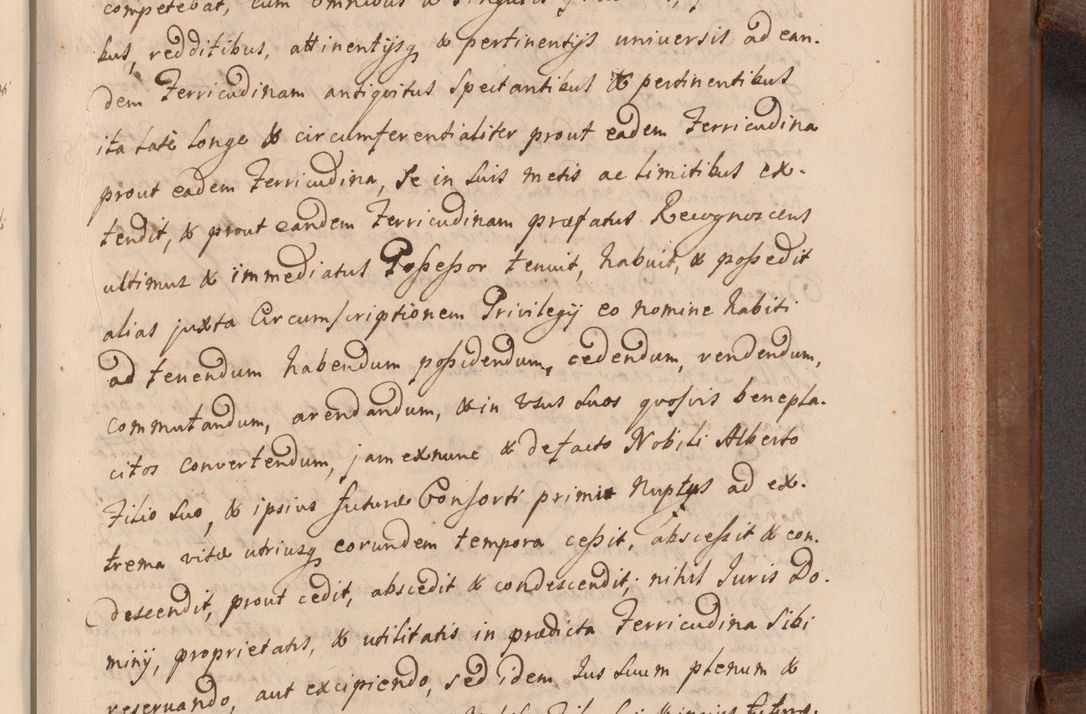 competebat, cum omnibus & singulis
bus, redditibus, attinentijsq & pertinentijs universis ad ean-
dem Ferricudinam antiquitus Spectantibus & pertinentibus
ita late longe & circumferentialiter prout eadem Ferricudina
prout eadem Ferricudina, se in suis metis ac limitibus ex-
tendit, & prout eandem Ferricudinam præfatus Recognoscens
ultimus & immediatus Possessor tenuit, habuit, & possedit
alias juxta Circumscriptionem Privilegij eo nomine habiti
ad tenendum habendum possidendum, cedendum, vendendum,
commutandum, arendandum, & in Usus suos quosvis benepla-
citos convertendum, jam exnunc & defacto Nobili Alberto
Filio suo, & ipsius futuræ Consorti primis Nuptys ad ex-
trema vitæ utriusq eorundem tempora cessit, abscessit & con-
descendit, prout cedit, abscedit & condescendit; nihil Juris Do-
minij, proprietatis, & utilitatis in prædicta Ferricudina Sibi
reservando, aut excipiendo, sed idem Jus suum plenum &